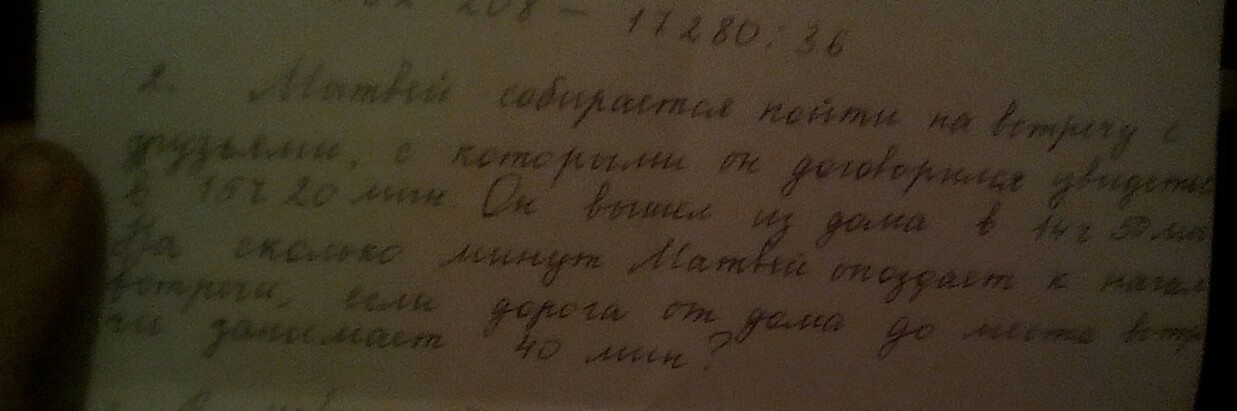 208 - 17280:36
2. Матвей собирается пойти на встречу с
друзьями, с которыми он договорился увидеть
в 15ч 20 мин. Он вышел из дома в 14ч 50 ми
На сколько минут Матвей опоздает к начал
встречи, если дорога от дома до места встр
чи занимает 40 мин?